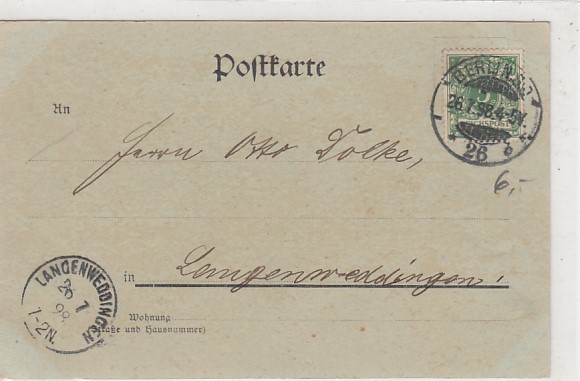 Postkarte
BERLIN
26.7.98.4-5N.
REICHSPOST
26 b
An
Herrn Otto Dolke,
6,-
in
Langenweddingen.
LANGENWEDDINGEN
26 7
98
1-2N.
Wohnung
(Straße und Hausnummer)